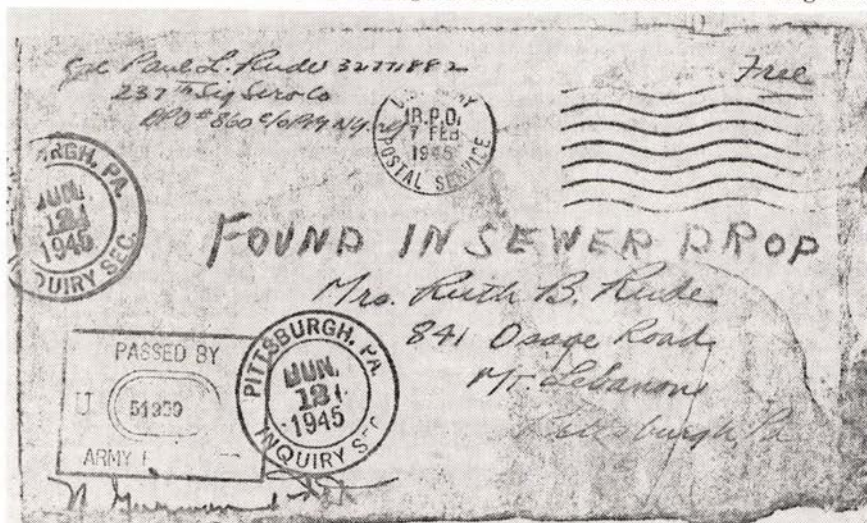 Paul L. Rude 32771882
237th Sig Serv Co
APO # 860 c/o P.M. N.Y. N.Y.
Free
B.P.O.
7 FEB
1945
POSTAL SERVICE
RGH, PA.
JUN.
12
1945
QUIRY SEC.
FOUND IN SEWER DROP
Mrs. Ruth B. Rude
841 Osage Road
Mt. Lebanon
Pittsburgh, Pa
PASSED BY
U
ARMY E
PITTSBURGH, PA.
JUN.
12
1945
INQUIRY SEC.